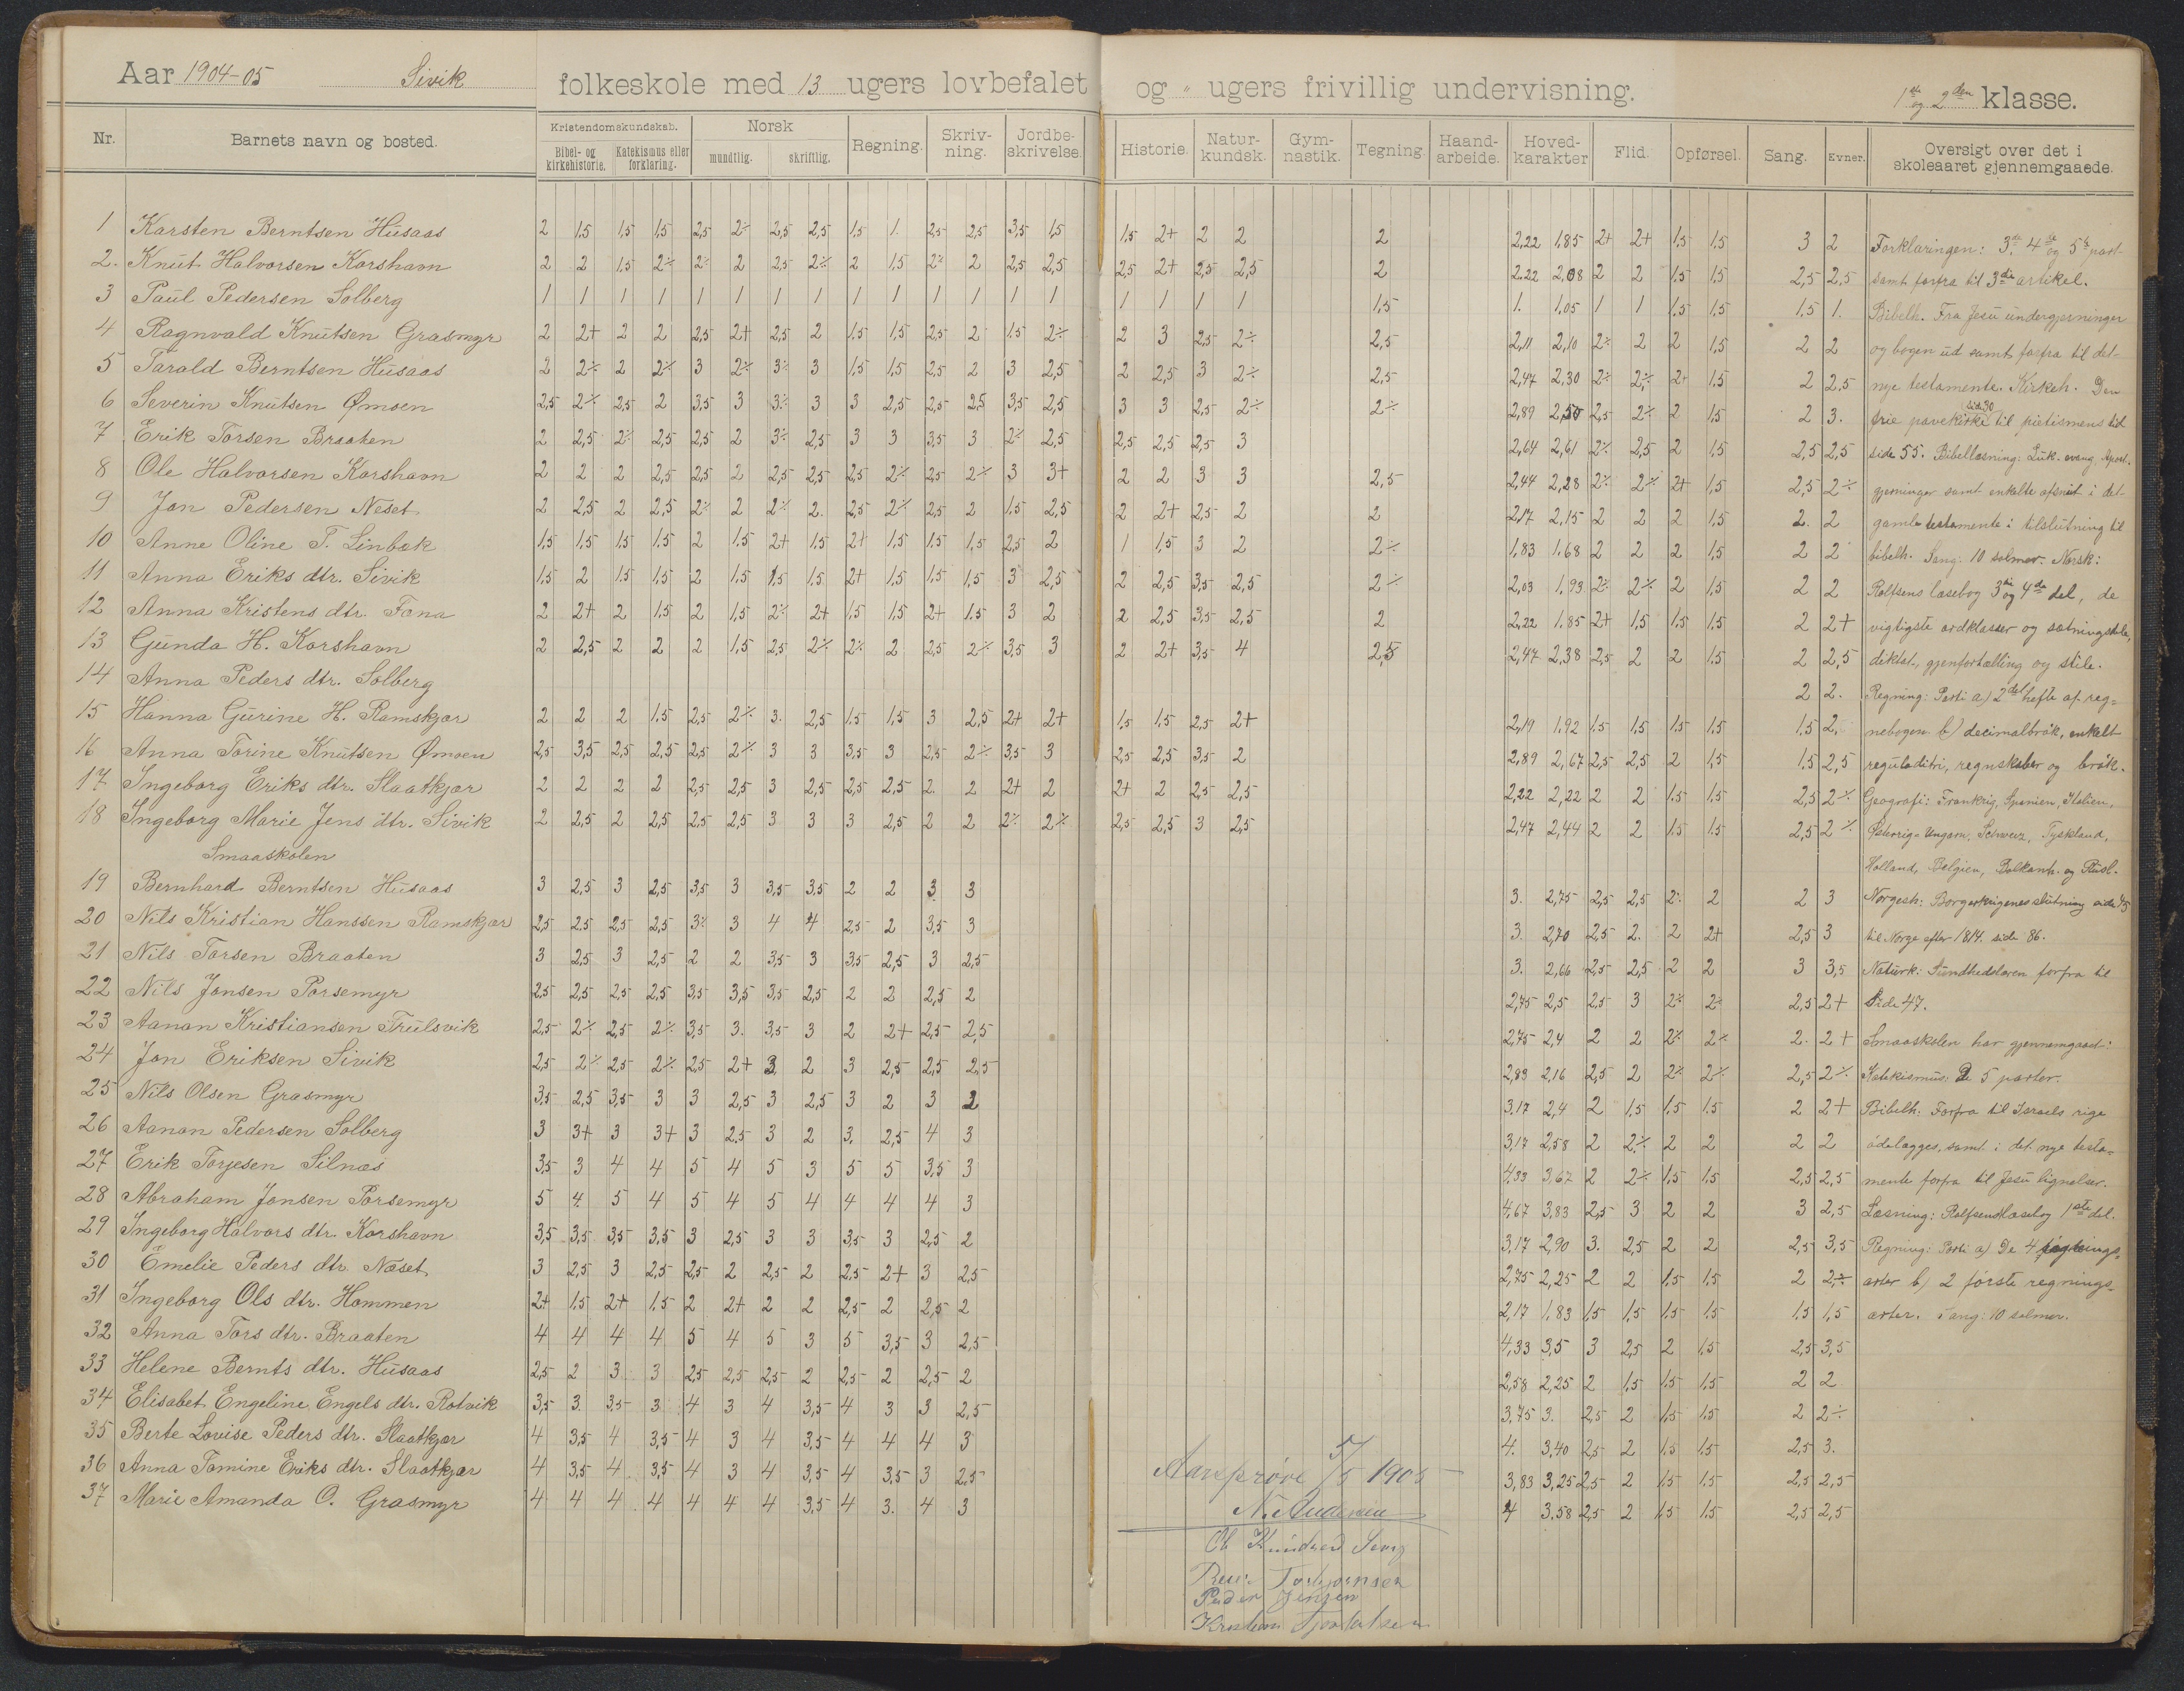 Aar 1904-05 Sivik folkeskole med 13 ugers lovbefalet og " ugers frivillig undervisning. 1ste og 2den klasse.
Nr. Barnets navn og bosted. Kristendomskundskab. Norsk Regning. Skriv-ning. Jordbe-skrivelse. Historie. Natur-kundsk. Gym-nastik. Tegning. Haand-arbeide. Hoved-karakter Flid. Opførsel. Sang. Evner. Oversigt over det i skoleaaret gjennemgaaede.
Bibel- og kirkehistorie. Katekismus eller forklaring. mundtlig. skriftlig.
1 Karsten Berntsen Husaas 2 1,5 1,5 1,5 2,5 2÷ 2,5 2,5 1,5 1. 2,5 2,5 3,5 1,5 1,5 2+ 2 2 2 2,22 1,85 2+ 2+ 1,5 1,5 3 2
2. Knut Halvorsen Korshavn 2 2 1,5 2÷ 2÷ 2 2,5 2÷ 2 1,5 2÷ 2 2,5 2,5 2,5 2+ 2,5 2,5 2 2,22 2,08 2 2 1,5 1,5 2,5 2,5
3 Paul Pedersen Solberg 1 1 1 1 1 1 1 1 1 1 1 1 1 1 1 1 1 1 1,5 1. 1,05 1 1 1,5 1,5 1,5 1.
4 Ragnvald Knutsen Grasmyr 2 2+ 2 2 2,5 2+ 2,5 2 1,5 1,5 2,5 2 1,5 2÷ 2 3 2,5 2÷ 2,5 2,11 2,10 2÷ 2 2 1,5 2 2
5 Tarald Berntsen Husaas 2 2÷ 2 2÷ 3 2÷ 3÷ 3 1,5 1,5 2,5 2 3 2,5 2 2,5 3 2÷ 2,5 2,47 2,30 2÷ 2÷ 2+ 1,5 2 2,5
6 Severin Knutsen Ømoen 2,5 2÷ 2,5 2 3,5 3 3÷ 3 3 2,5 2,5 2,5 3,5 2,5 3 3 2,5 2÷ 2÷ 2,89 2,50 2,5 2÷ 2 1,5 2 3.
7 Erik Torsen Braaten 2 2,5 2÷ 2,5 2,5 2 3÷ 2,5 3 3 3,5 3 2÷ 2,5 2,5 2,5 2,5 3 2,64 2,61 2÷ 2,5 2 1,5 2,5 2,5
8 Ole Halvorsen Korshavn 2 2 2 2,5 2,5 2 2,5 2,5 2,5 2÷ 2,5 2÷ 3 3+ 2 2 3 3 2,5 2,44 2,28 2÷ 2÷ 2+ 1,5 2,5 2÷
9 Jon Pedersen Neset 2 2,5 2 2,5 2÷ 2 2÷ 2. 2,5 2÷ 2,5 2 1,5 2,5 2 2+ 2,5 2 2 2,17 2,15 2 2 2 1,5 2. 2
10 Anne Oline T. Linbæk 1,5 1,5 1,5 1,5 2 1,5 2+ 1,5 2+ 1,5 1,5 1,5 2,5 2 1 1,5 3 2 2÷ 1,83 1,68 2 2 2 1,5 2 2
11 Anna Eriks dtr. Sivik 1,5 2 1,5 1,5 2 1,5 1,5 1,5 2+ 1,5 1,5 1,5 3 2,5 2 2,5 3,5 2,5 2÷ 2,03 1,93 2÷ 2÷ 2 1,5 2 2
12 Anna Kristens dtr. Fona 2 2+ 2 1,5 2 1,5 2÷ 2+ 1,5 1,5 2+ 1,5 3 2 2 2,5 3,5 2,5 2 2,22 1,85 2+ 1,5 1,5 1,5 2 2+
13 Gunda H. Korshavn 2 2,5 2 2 2 1,5 2,5 2÷ 2÷ 2 2,5 2÷ 3,5 3 2 2+ 3,5 4 2,5 2,47 2,38 2,5 2 2 1,5 2 2,5
14 Anna Peders dtr. Solberg 2 2.
15 Hanna Gurine H. Ramskjær 2 2 2 1,5 2,5 2÷ 3. 2,5 1,5 1,5 3 2,5 2+ 2+ 1,5 1,5 2,5 2+ 2,19 1,92 1,5 1,5 1,5 1,5 1,5 2.
16 Anna Torine Knutsen Ømoen 2,5 3,5 2,5 2,5 2,5 2÷ 3 3 3,5 3 2,5 2÷ 3,5 3 2,5 2,5 3,5 2 2,89 2,67 2,5 2,5 2 1,5 1,5 2,5
17 Ingeborg Eriks dtr. Slaatkjær 2 2 2 2 2,5 2,5 3 2,5 2,5 2,5 2. 2 2+ 2 2+ 2 2,5 2,5 2,22 2,22 2 2 1,5 1,5 2,5 2÷
18 Ingeborg Marie Jens dtr. Sivik 2 2,5 2 2,5 2,5 2,5 3 3 3 2,5 2 2 2÷ 2÷ 2,5 2,5 3 2,5 2,47 2,44 2 2 1,5 1,5 2,5 2÷
Smaaskolen
19 Bernhard Berntsen Husaas 3 2,5 3 2,5 3,5 3 3,5 3,5 2 2 3 3 3. 2,75 2,5 2,5 2÷ 2 2 3
20 Nils Kristian Hanssen Ramskjær 2,5 2,5 2,5 2,5 3÷ 3 4 4 2,5 2 3,5 3 3. 2,70 2,5 2. 2 2+ 2,5 3
21 Nils Torsen Braaten 3 2,5 3 2,5 2 2 3,5 3 3,5 2,5 3 2,5 3. 2,66 2,5 2,5 2 2 3 3,5
22 Nils Jonsen Porsemyr 2,5 2,5 2,5 2,5 3,5 3,5 3,5 2,5 2 2 2,5 2 2,75 2,5 2,5 3 2÷ 2÷ 2,5 2+
23 Aanon Kristiansen Trulsvik 2,5 2÷ 2,5 2÷ 3,5 3. 3,5 3 2 2+ 2,5 2,5 2,75 2,4 2 2 2÷ 2÷ 2. 2+
24 Jon Eriksen Sivik 2,5 2÷ 2,5 2÷ 2,5 2+ 3 2 3 2,5 2,5 2,5 2,83 2,16 2,5 2 2÷ 2÷ 2,5 2÷
25 Nils Olsen Grasmyr 3,5 2,5 3,5 3 3 2,5 3 2,5 3 2 3 2 3,17 2,4 2 1,5 1,5 1,5 2 2+
26 Aanon Pedersen Solberg 3 3+ 3 3+ 3 2,5 3 2 3. 2,5 4 3 3,17 2,58 2 2÷ 2 2 2 2
27 Erik Torjesen Silnæs 3,5 3 4 4 5 4 5 3 5 5 3,5 3 4,33 3,67 2 2÷ 1,5 1,5 2,5 2,5
28 Abraham Jonsen Porsemyr 5 4. 5 4 5 4 5 4 4 4 4 3 4,67 3,83 2,5 3 2 2 3 2,5
29 Ingeborg Halvors dtr. Korshavn 3,5 3,5 3,5 3,5 3 2,5 3 3 3,5 3 2,5 2 3,17 2,90 3. 2,5 2 2 2,5 3,5
30 Emelie Peders dtr. Næset 3 2,5 3 2,5 2,5 2 2,5 2 2,5 2+ 3 2,5 2,75 2,25 2 2 1,5 1,5 2 2÷
31 Ingeborg Ols dtr. Hommen 2+ 1,5 2+ 1,5 2 2+ 2 2 2,5 2 2,5 2 2,17 1,83 1,5 1,5 1,5 1,5 1,5 1,5
32 Anna Tors dtr. Braaten 4 4 4 4 5 4 5 3 5 3,5 3 2,5 4,33 3,5 3 2,5 2 1,5 2,5 3,5
33 Helene Bernts dtr. Husaas 2,5 2 3 3 2,5 2,5 2,5 2 2,5 2 2,5 2 2,58 2,25 2 1,5 1,5 1,5 2 2
34 Elisabet Engeline Engels dtr. Rotvik 3,5 3. 3,5 3 4 3 4 3,5 4 3 3 2,5 3,75 3. 2,5 2 1,5 1,5 2 2÷
35 Berte Lovise Peders dtr. Slaatkjær 4 3,5 4 3,5 4 3 4 3,5 4 4 4 3 4. 3,40 2,5 2 1,5 1,5 2,5 3.
36 Anna Tomine Eriks dtr. Slaatkjær 4 3,5 4 3,5 4 3 4 3,5 4 3,5 3 2,5 3,83 3,25 2,5 2 1,5 1,5 2,5 2,5
37 Marie Amanda O. Grasmyr 4 4 4 4 4 4 4 3,5 4 3. 4 3 4 3,58 2,5 2 1,5 1,5 2,5 2,5
Forklaringen: 3die, 4de og 5te part
samt forfra til 3die artikel.
Bibelh. Fra Jesu undergjerninger
og bogen ud samt forfra til det
nye testamente. Kirkeh. Den
frie pavekirke side 30 til pietismens tid
side 55. Bibellæsning: Luk. evang. Apost.
gjerninger samt enkelte afsnit i det
gamle testamente i tilslutning til
bibelh. Sang: 10 salmer. Norsk:
Rolfsens læsebog 3die og 4de del, de
vigtigste ordklasser og sætningsdele,
diktat, gjenfortælling og stile.
Regning: Parti a) 2det hefte af reg-
nebogen b) decimalbrøk, enkelt
reguladitri, regnskaber og brøk.
Geografi: Frankrig, Spanien, Italien,
Østerrig-Ungarn, Schweiz, Tyskland,
Holland, Belgien, Balkanh. og Rusl.
Norgesh: Borgerkrigenes slutning side 45
til Norge efter 1814. side 86.
Naturk: Sundhedslæren forfra til
side 47.
Smaaskolen har gjennemgaad:
Katekismus: De 5 parter.
Bibelh. Forfra til Israels rige
ødelægges, samt i det nye testa-
mente forfra til Jesu lignelser.
Læsning: Rolfsens læsebog 1ste del.
Regning: Parti a) De 4 regnings-
arter b) 2 første regnings-
arter. Sang: 10 salmer.
Aarsprøve 5/5 1905
N. Andersen
Peder Jensen